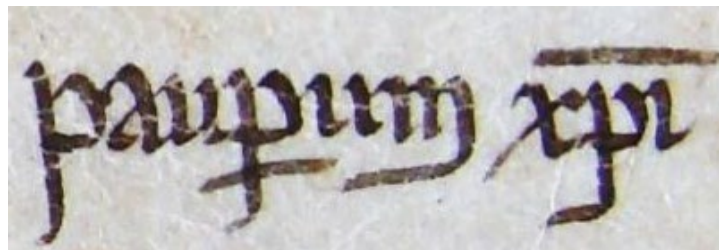 paup̱um xp̅i